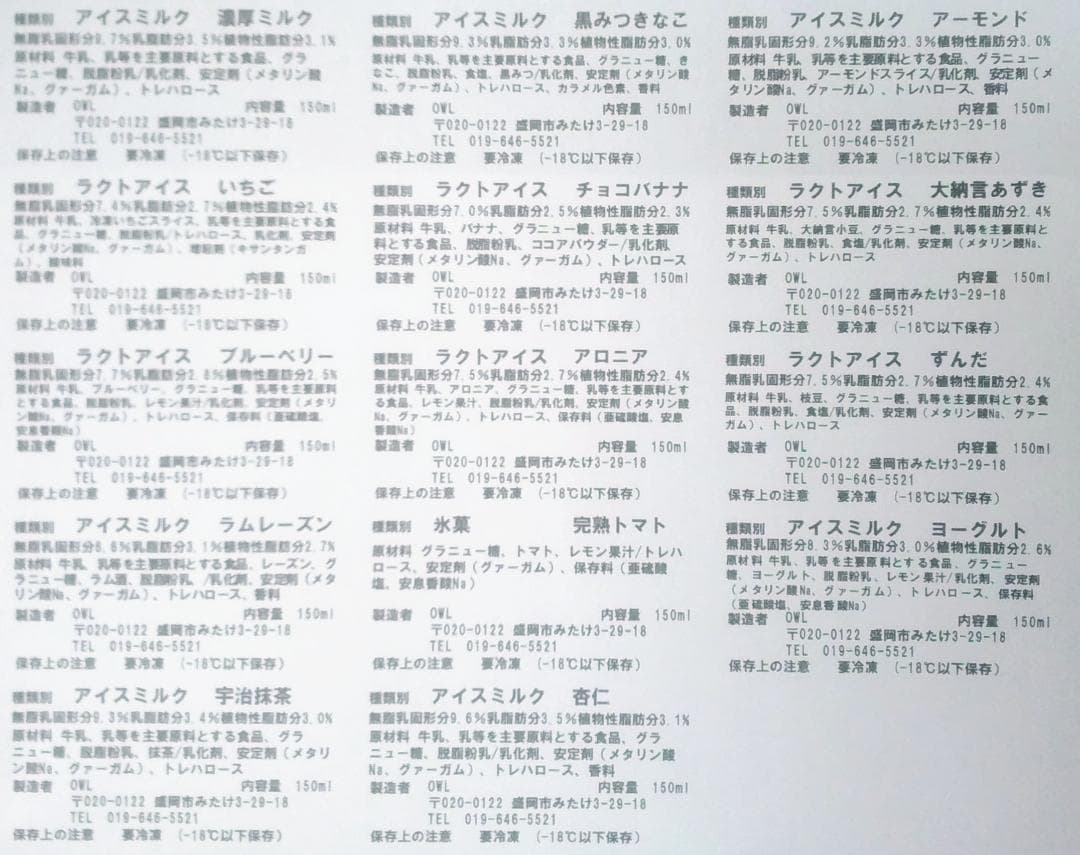 種類別 アイスミルク 濃厚ミルク
無脂乳固形分9.7%乳脂肪分3.5%植物性脂肪分3.1%
原材料 牛乳、乳等を主要原料とする食品、グラ
ニュー糖、脱脂粉乳/乳化剤、安定剤(メタリン酸
Na、グァーガム)、トレハロース
製造者 OWL 内容量 150ml
〒020-0122 盛岡市みたけ3-29-18
TEL 019-646-5521
保存上の注意 要冷凍 (-18℃以下保存)
種類別 アイスミルク 黒みつきなこ
無脂乳固形分9.3%乳脂肪分3.3%植物性脂肪分3.0%
原材料 牛乳、乳等を主要原料とする食品、グラニュー糖、き
なこ、脱脂粉乳、食塩、黒みつ/乳化剤、安定剤(メタリン酸
Na、グァーガム)、トレハロース、カラメル色素、香料
製造者 OWL 内容量 150ml
〒020-0122 盛岡市みたけ3-29-18
TEL 019-646-5521
保存上の注意 要冷凍 (-18℃以下保存)
種類別 アイスミルク アーモンド
無脂乳固形分9.2%乳脂肪分3.3%植物性脂肪分3.0%
原材料 牛乳、乳等を主要原料とする食品、グラニュー
糖、脱脂粉乳、アーモンドスライス/乳化剤、安定剤(メ
タリン酸Na、グァーガム)、トレハロース、香料
製造者 OWL 内容量 150ml
〒020-0122 盛岡市みたけ3-29-18
TEL 019-646-5521
保存上の注意 要冷凍 (-18℃以下保存)
種類別 ラクトアイス いちご
無脂乳固形分7.4%乳脂肪分2.7%植物性脂肪分2.4%
原材料 牛乳、冷凍いちごスライス、乳等を主要原料とする食
品、グラニュー糖、脱脂粉乳/トレハロース、乳化剤、安定剤
(メタリン酸Na、グァーガム)、増粘剤(キサンタンガ
ム)、酸味料
製造者 OWL 内容量 150ml
〒020-0122 盛岡市みたけ3-29-18
TEL 019-646-5521
保存上の注意 要冷凍 (-18℃以下保存)
種類別 ラクトアイス チョコバナナ
無脂乳固形分7.0%乳脂肪分2.5%植物性脂肪分2.3%
原材料 牛乳、バナナ、グラニュー糖、乳等を主要原
料とする食品、脱脂粉乳、ココアパウダー/乳化剤、
安定剤(メタリン酸Na、グァーガム)、トレハロース
製造者 OWL 内容量 150ml
〒020-0122 盛岡市みたけ3-29-18
TEL 019-646-5521
保存上の注意 要冷凍 (-18℃以下保存)
種類別 ラクトアイス 大納言あずき
無脂乳固形分7.5%乳脂肪分2.7%植物性脂肪分2.4%
原材料 牛乳、大納言小豆、グラニュー糖、乳等を主要原料と
する食品、脱脂粉乳、食塩/乳化剤、安定剤(メタリン酸Na、
グァーガム)、トレハロース
製造者 OWL 内容量 150ml
〒020-0122 盛岡市みたけ3-29-18
TEL 019-646-5521
保存上の注意 要冷凍 (-18℃以下保存)
種類別 ラクトアイス ブルーベリー
無脂乳固形分7.7%乳脂肪分2.8%植物性脂肪分2.5%
原材料 牛乳、ブルーベリー、グラニュー糖、乳等を主要原料
とする食品、脱脂粉乳、レモン果汁/乳化剤、安定剤(メタリ
ン酸Na、グァーガム)、トレハロース、保存料(亜硫酸塩、
安息香酸Na)
製造者 OWL 内容量 150ml
〒020-0122 盛岡市みたけ3-29-18
TEL 019-646-5521
保存上の注意 要冷凍 (-18℃以下保存)
種類別 ラクトアイス アロニア
無脂乳固形分7.5%乳脂肪分2.7%植物性脂肪分2.4%
原材料 牛乳、アロニア、グラニュー糖、乳等を主要原料とす
る食品、レモン果汁、脱脂粉乳/乳化剤、安定剤(メタリン酸
Na、グァーガム)、トレハロース、保存料(亜硫酸塩、安息
香酸Na)
製造者 OWL 内容量 150ml
〒020-0122 盛岡市みたけ3-29-18
TEL 019-646-5521
保存上の注意 要冷凍 (-18℃以下保存)
種類別 ラクトアイス ずんだ
無脂乳固形分7.5%乳脂肪分2.7%植物性脂肪分2.4%
原材料 牛乳、枝豆、グラニュー糖、乳等を主要原料とする食
品、脱脂粉乳、食塩/乳化剤、安定剤(メタリン酸Na、グァー
ガム)、トレハロース
製造者 OWL 内容量 150ml
〒020-0122 盛岡市みたけ3-29-18
TEL 019-646-5521
保存上の注意 要冷凍 (-18℃以下保存)
種類別 アイスミルク ラムレーズン
無脂乳固形分8.6%乳脂肪分3.1%植物性脂肪分2.7%
原材料 牛乳、乳等を主要原料とする食品、レーズン、グ
ラニュー糖、ラム酒、脱脂粉乳、/乳化剤、安定剤(メタ
リン酸Na、グァーガム)、トレハロース、香料
製造者 OWL 内容量 150ml
〒020-0122 盛岡市みたけ3-29-18
TEL 019-646-5521
保存上の注意 要冷凍 (-18℃以下保存)
種類別 氷菓 完熟トマト
原材料 グラニュー糖、トマト、レモン果汁/トレハ
ロース、安定剤(グァーガム)、保存料(亜硫酸
塩、安息香酸Na)
製造者 OWL 内容量 150ml
〒020-0122 盛岡市みたけ3-29-18
TEL 019-646-5521
保存上の注意 要冷凍 (-18℃以下保存)
種類別 アイスミルク ヨーグルト
無脂乳固形分8.3%乳脂肪分3.0%植物性脂肪分2.6%
原材料 牛乳、乳等を主要原料とする食品、グラニュー
糖、ヨーグルト、脱脂粉乳、レモン果汁/乳化剤、安定剤
(メタリン酸Na、グァーガム)、トレハロース、保存料
(亜硫酸塩、安息香酸Na)
製造者 OWL 内容量 150ml
〒020-0122 盛岡市みたけ3-29-18
TEL 019-646-5521
保存上の注意 要冷凍 (-18℃以下保存)
種類別 アイスミルク 宇治抹茶
無脂乳固形分9.3%乳脂肪分3.4%植物性脂肪分3.0%
原材料 牛乳、乳等を主要原料とする食品、グラ
ニュー糖、脱脂粉乳、抹茶/乳化剤、安定剤(メタリ
ン酸Na、グァーガム)、トレハロース
製造者 OWL 内容量 150ml
〒020-0122 盛岡市みたけ3-29-18
TEL 019-646-5521
保存上の注意 要冷凍 (-18℃以下保存)
種類別 アイスミルク 杏仁
無脂乳固形分9.6%乳脂肪分3.5%植物性脂肪分3.1%
原材料 牛乳、乳等を主要原料とする食品、グラ
ニュー糖、脱脂粉乳/乳化剤、安定剤(メタリン酸
Na、グァーガム)、トレハロース、香料
製造者 OWL 内容量 150ml
〒020-0122 盛岡市みたけ3-29-18
TEL 019-646-5521
保存上の注意 要冷凍 (-18℃以下保存)